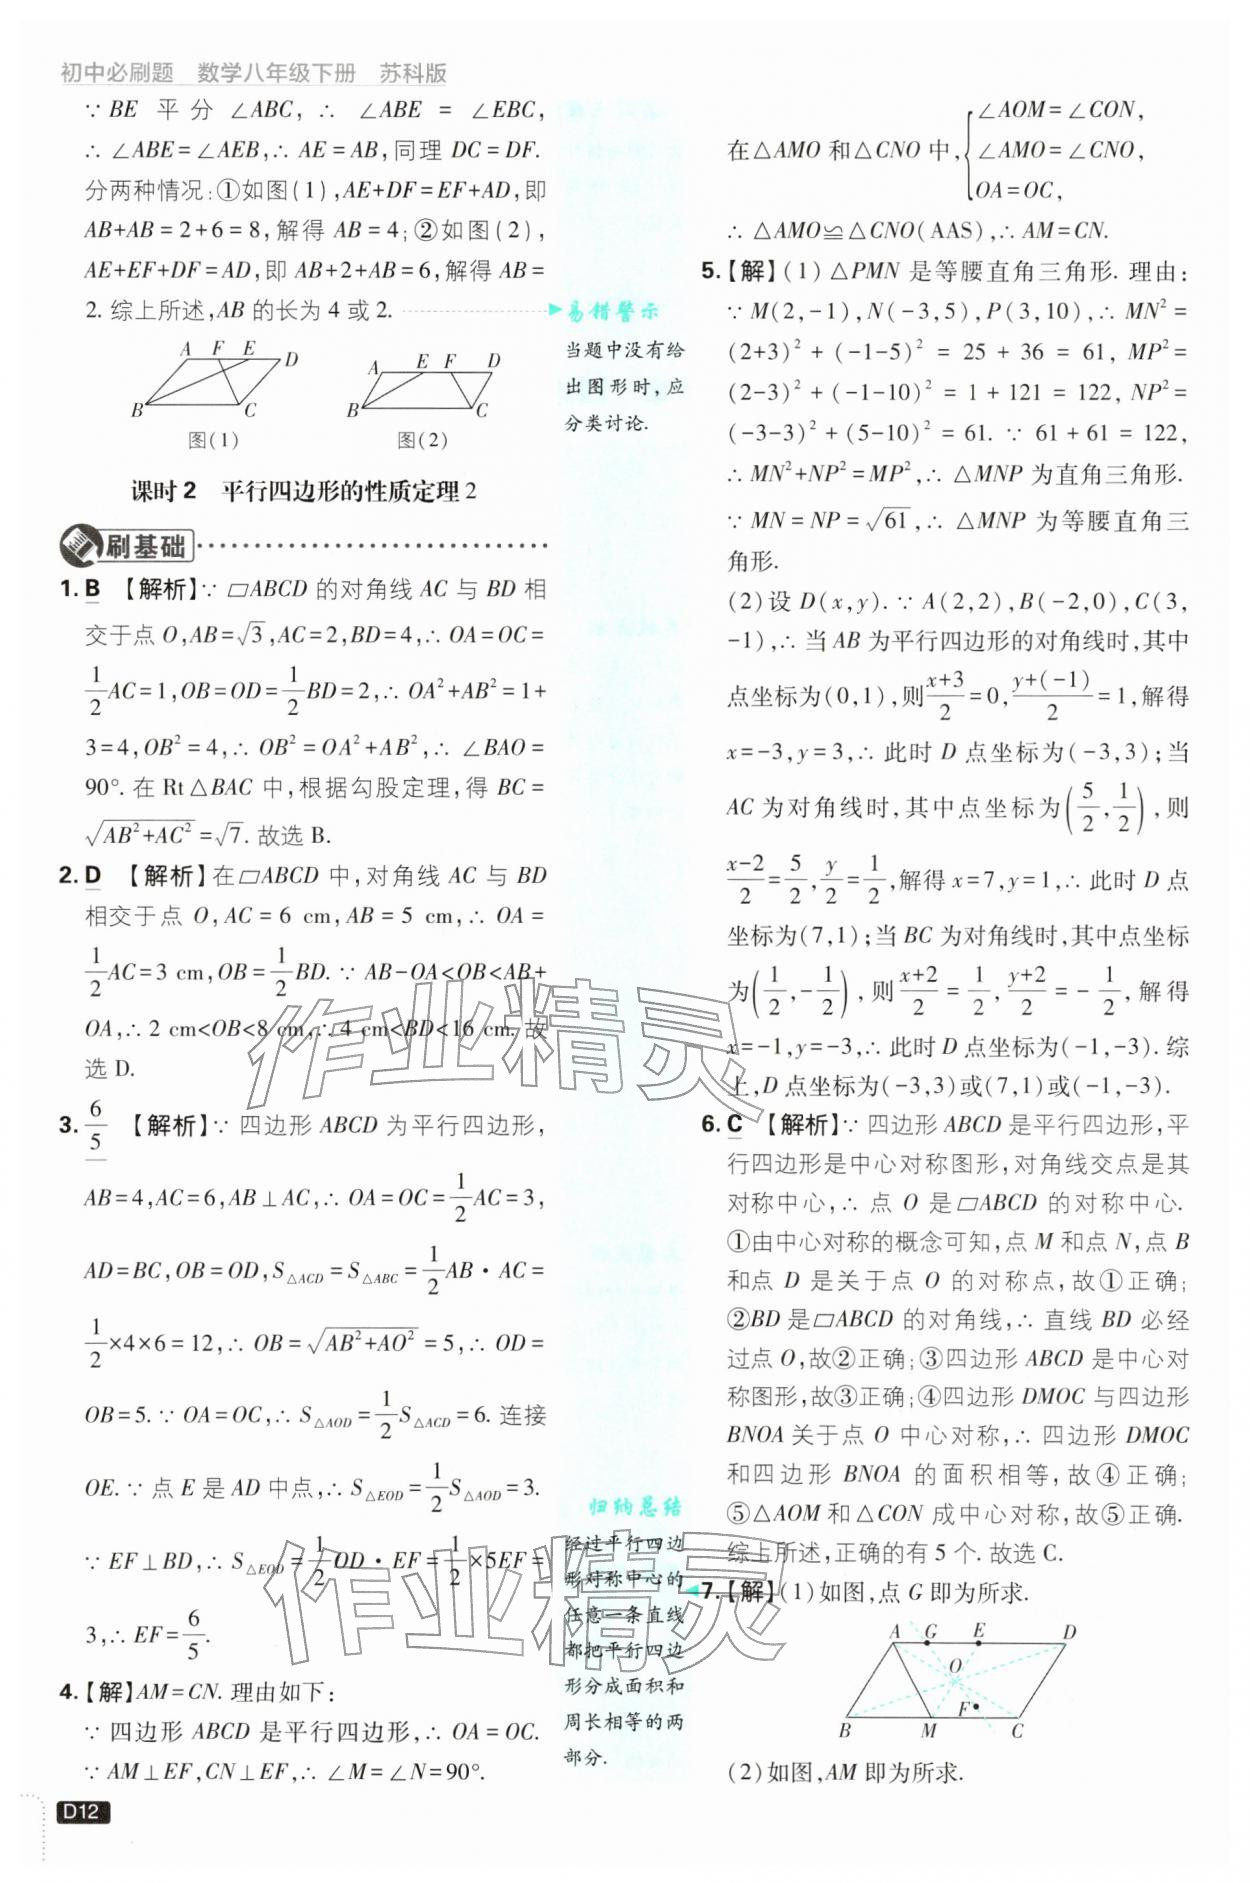 初中必刷题 数学八年级下册 苏科版
∵ BE 平分 ∠ABC, ∴ ∠ABE = ∠EBC,
∴ ∠ABE=∠AEB,∴ AE=AB,同理 DC=DF.
分两种情况:①如图(1),AE+DF=EF+AD,即
AB+AB=2+6=8,解得 AB=4;②如图(2),
AE+EF+DF=AD,即 AB+2+AB=6,解得 AB=
2. 综上所述,AB 的长为 4 或 2.
A F E D
B C
图(1)
A E F D
B C
图(2)
课时 2 平行四边形的性质定理 2
刷基础
1. B 【解析】∵ ▱ABCD 的对角线 AC 与 BD 相
交于点 O,AB=√3,AC=2,BD=4,∴ OA=OC=
1/2 AC=1,OB=OD=1/2 BD=2,∴ OA²+AB²=1+
3=4,OB²=4,∴ OB²=OA²+AB²,∴ ∠BAO=
90°. 在 Rt△BAC 中,根据勾股定理,得 BC=
√(AB²+AC²)=√7. 故选 B.
2. D 【解析】在▱ABCD 中,对角线 AC 与 BD
相交于点 O,AC=6 cm,AB=5 cm,∴ OA=
1/2 AC=3 cm,OB=1/2 BD. ∵ AB-OA<OB<AB+
OA,∴ 2 cm<OB<8 cm,∴ 4 cm<BD<16 cm. 故
选 D.
3. 6/5 【解析】∵ 四边形 ABCD 为平行四边形,
AB=4,AC=6,AB⊥AC,∴ OA=OC=1/2 AC=3,
AD=BC,OB=OD,S△ACD=S△ABC=1/2 AB·AC=
1/2×4×6=12,∴ OB=√(AB²+AO²)=5,∴ OD=
OB=5. ∵ OA=OC,∴ S△AOD=1/2 S△ACD=6. 连接
OE. ∵ 点 E 是 AD 中点,∴ S△EOD=1/2 S△AOD=3.
∵ EF⊥BD,∴ S△EOD=1/2 OD·EF=1/2×5EF=
3,∴ EF=6/5.
4. 【解】AM=CN. 理由如下:
∵ 四边形 ABCD 是平行四边形,∴ OA=OC.
∵ AM⊥EF,CN⊥EF,∴ ∠M=∠N=90°.
D12
易错警示
当题中没有给
出图形时,应
分类讨论.
归纳总结
经过平行四边
形对称中心的
任意一条直线
都把平行四边
形分成面积和
周长相等的两
部分.
在△AMO 和△CNO 中,{∠AOM=∠CON,
∠AMO=∠CNO,
OA=OC,
∴ △AMO≌△CNO(AAS),∴ AM=CN.
5. 【解】(1)△PMN 是等腰直角三角形. 理由:
∵ M(2,-1),N(-3,5),P(3,10),∴ MN²=
(2+3)²+(-1-5)²=25+36=61,MP²=
(2-3)²+(-1-10)²=1+121=122,NP²=
(-3-3)²+(5-10)²=61. ∵ 61+61=122,
∴ MN²+NP²=MP²,∴ △MNP 为直角三角形.
∵ MN=NP=√61,∴ △MNP 为等腰直角三
角形.
(2)设 D(x,y). ∵ A(2,2),B(-2,0),C(3,
-1),∴ 当 AB 为平行四边形的对角线时,其中
点坐标为(0,1),则(x+3)/2=0,(y+(-1))/2=1,解得
x=-3,y=3,∴ 此时 D 点坐标为(-3,3);当
AC 为对角线时,其中点坐标为(5/2,1/2),则
(x-2)/2=5/2,y/2=1/2,解得 x=7,y=1,∴ 此时 D 点
坐标为(7,1);当 BC 为对角线时,其中点坐标
为(1/2,-1/2),则(x+2)/2=1/2,(y+2)/2=-1/2,解得
x=-1,y=-3,∴ 此时 D 点坐标为(-1,-3). 综
上,D 点坐标为(-3,3)或(7,1)或(-1,-3).
6. C 【解析】∵ 四边形 ABCD 是平行四边形,平
行四边形是中心对称图形,对角线交点是其
对称中心,∴ 点 O 是▱ABCD 的对称中心.
①由中心对称的概念可知,点 M 和点 N,点 B
和点 D 是关于点 O 的对称点,故①正确;
②BD 是▱ABCD 的对角线,∴ 直线 BD 必经
过点 O,故②正确;③四边形 ABCD 是中心对
称图形,故③正确;④四边形 DMOC 与四边形
BNOA 关于点 O 中心对称,∴ 四边形 DMOC
和四边形 BNOA 的面积相等,故④正确;
⑤△AOM 和△CON 成中心对称,故⑤正确.
综上所述,正确的有 5 个. 故选 C.
7. 【解】(1)如图,点 G 即为所求.
A G E D
O
F
B M C
(2)如图,AM 即为所求.
作业精灵
作业精灵